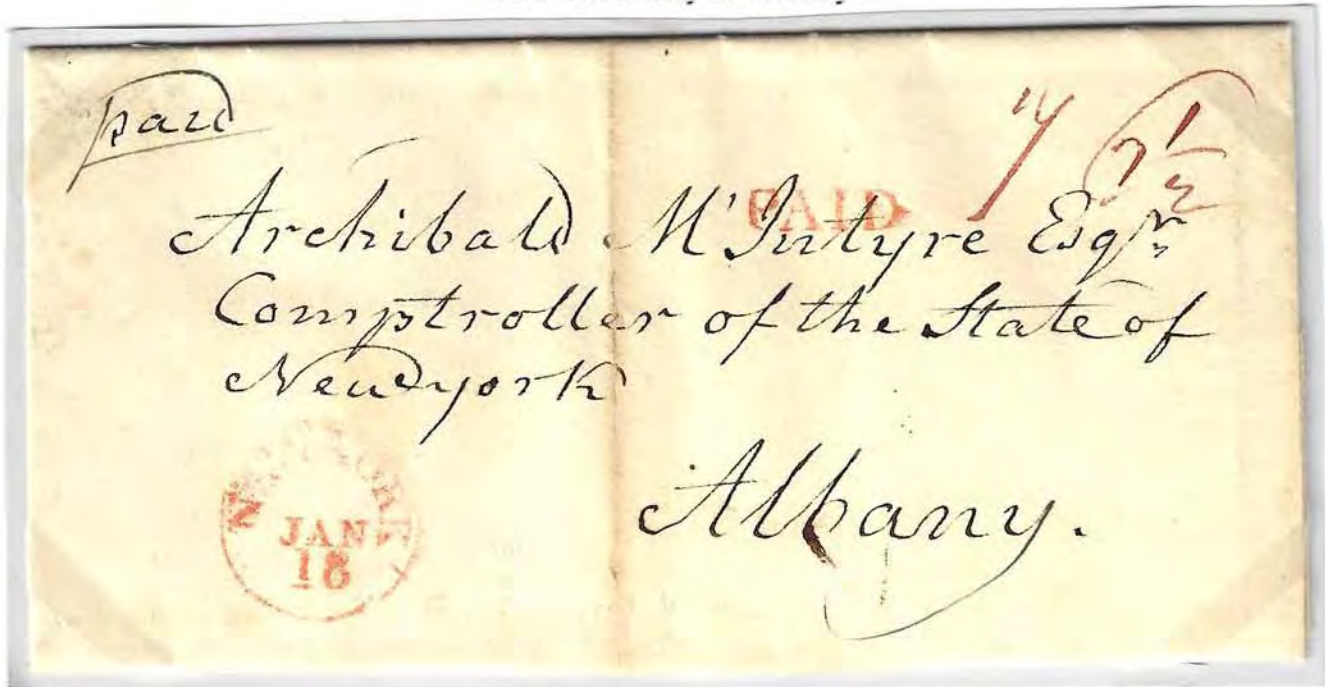 paid
PAID
Archibald M'Intyre Esqr
Comptroller of the State of
Newyork
Albany.
NEW YORK
JAN
16